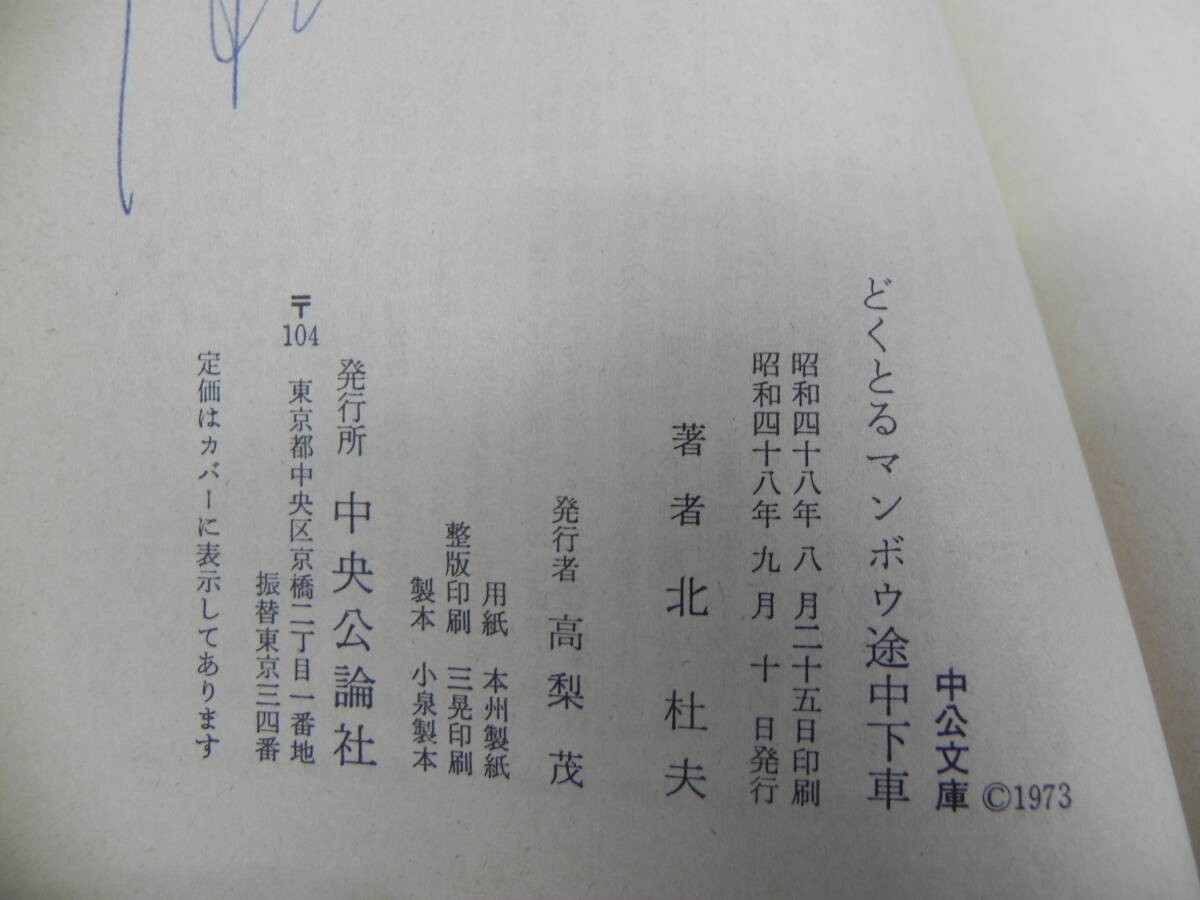 中公文庫 ©1973
どくとるマンボウ途中下車
昭和四十八年 八 月二十五日印刷
昭和四十八年 九 月 十 日発行
著者 北 杜夫
発行者 高梨 茂
用紙 本州製紙
整版印刷 三晃印刷
製本 小泉製本
発行所 中央公論社
〒104 東京都中央区京橋二丁目一番地
振替東京三四番
定価はカバーに表示してあります